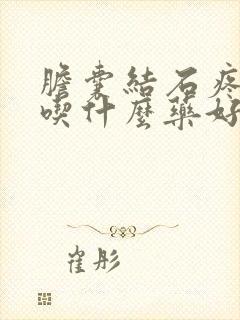 膽囊結石疼
喫什麼藥好
崔彤